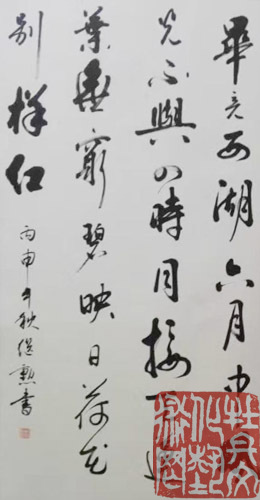 畢竟西湖六月中
光不與四時同接天蓮
葉無窮碧映日荷花
別樣红
丙申年秋继勳書